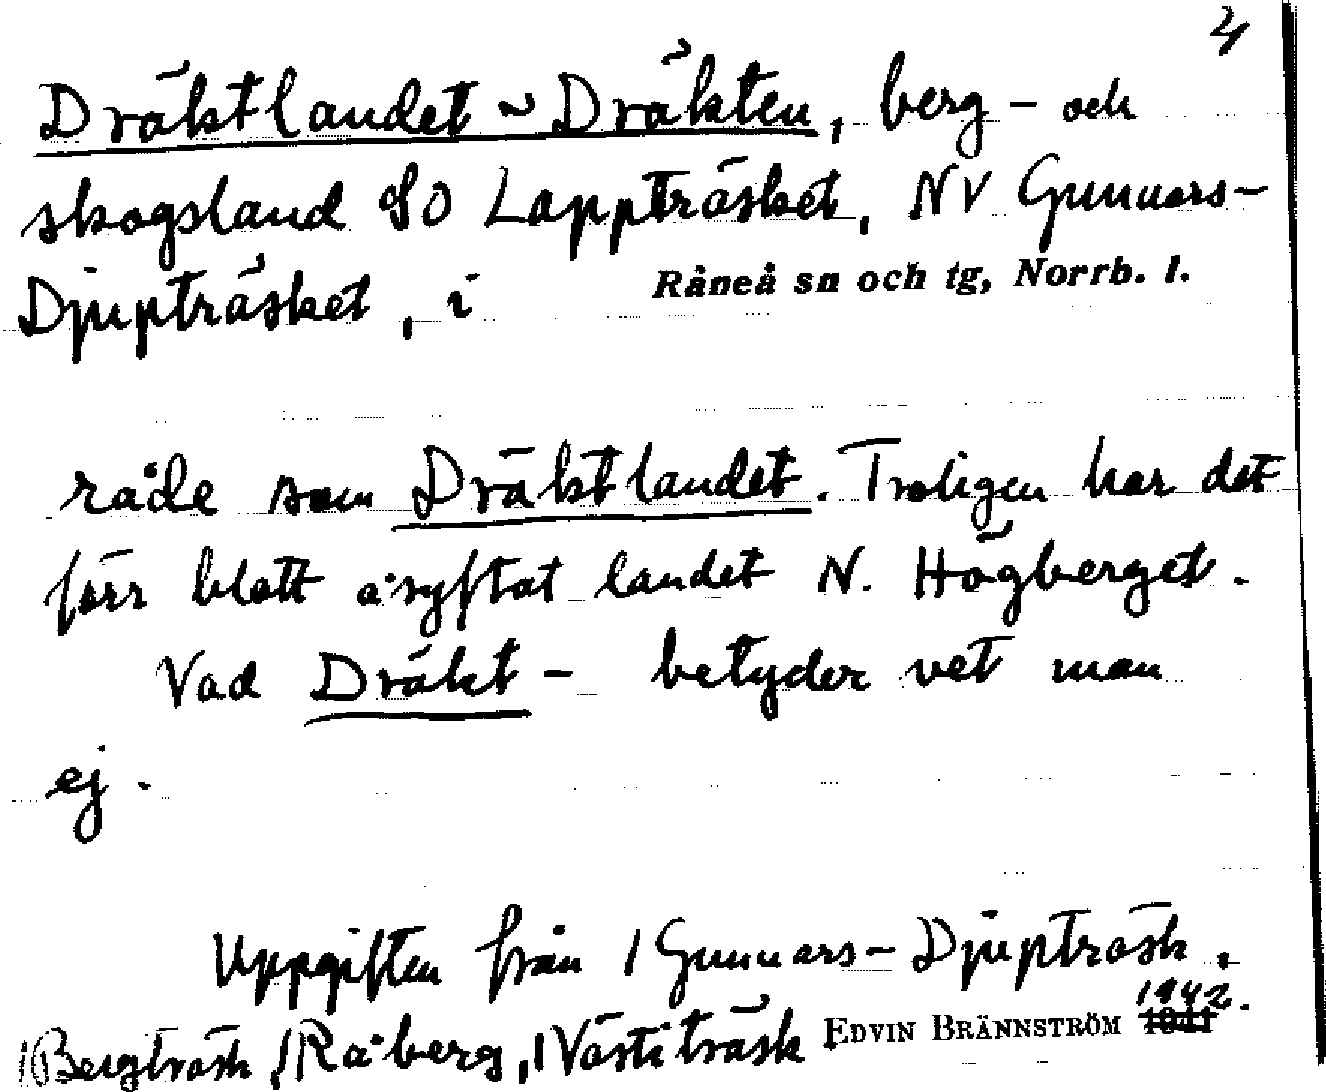 4
Dräktlandet ~ Dräkten, berg- och
skogsland SO Lappträsket, NV Gunnars-
Djupträsket, i Råneå sn och tg, Norrb. l.
råde som Dräktlandet. Troligen har det
förr blott åsyftat landet N. Högberget.
Vad Dräkt- betyder vet man
ej.
Uppgiften från / Gunnars-Djupträsk,
/Bergträsk, /Råberg, /Västiträsk EDVIN BRÄNNSTRÖM 1941 1942.